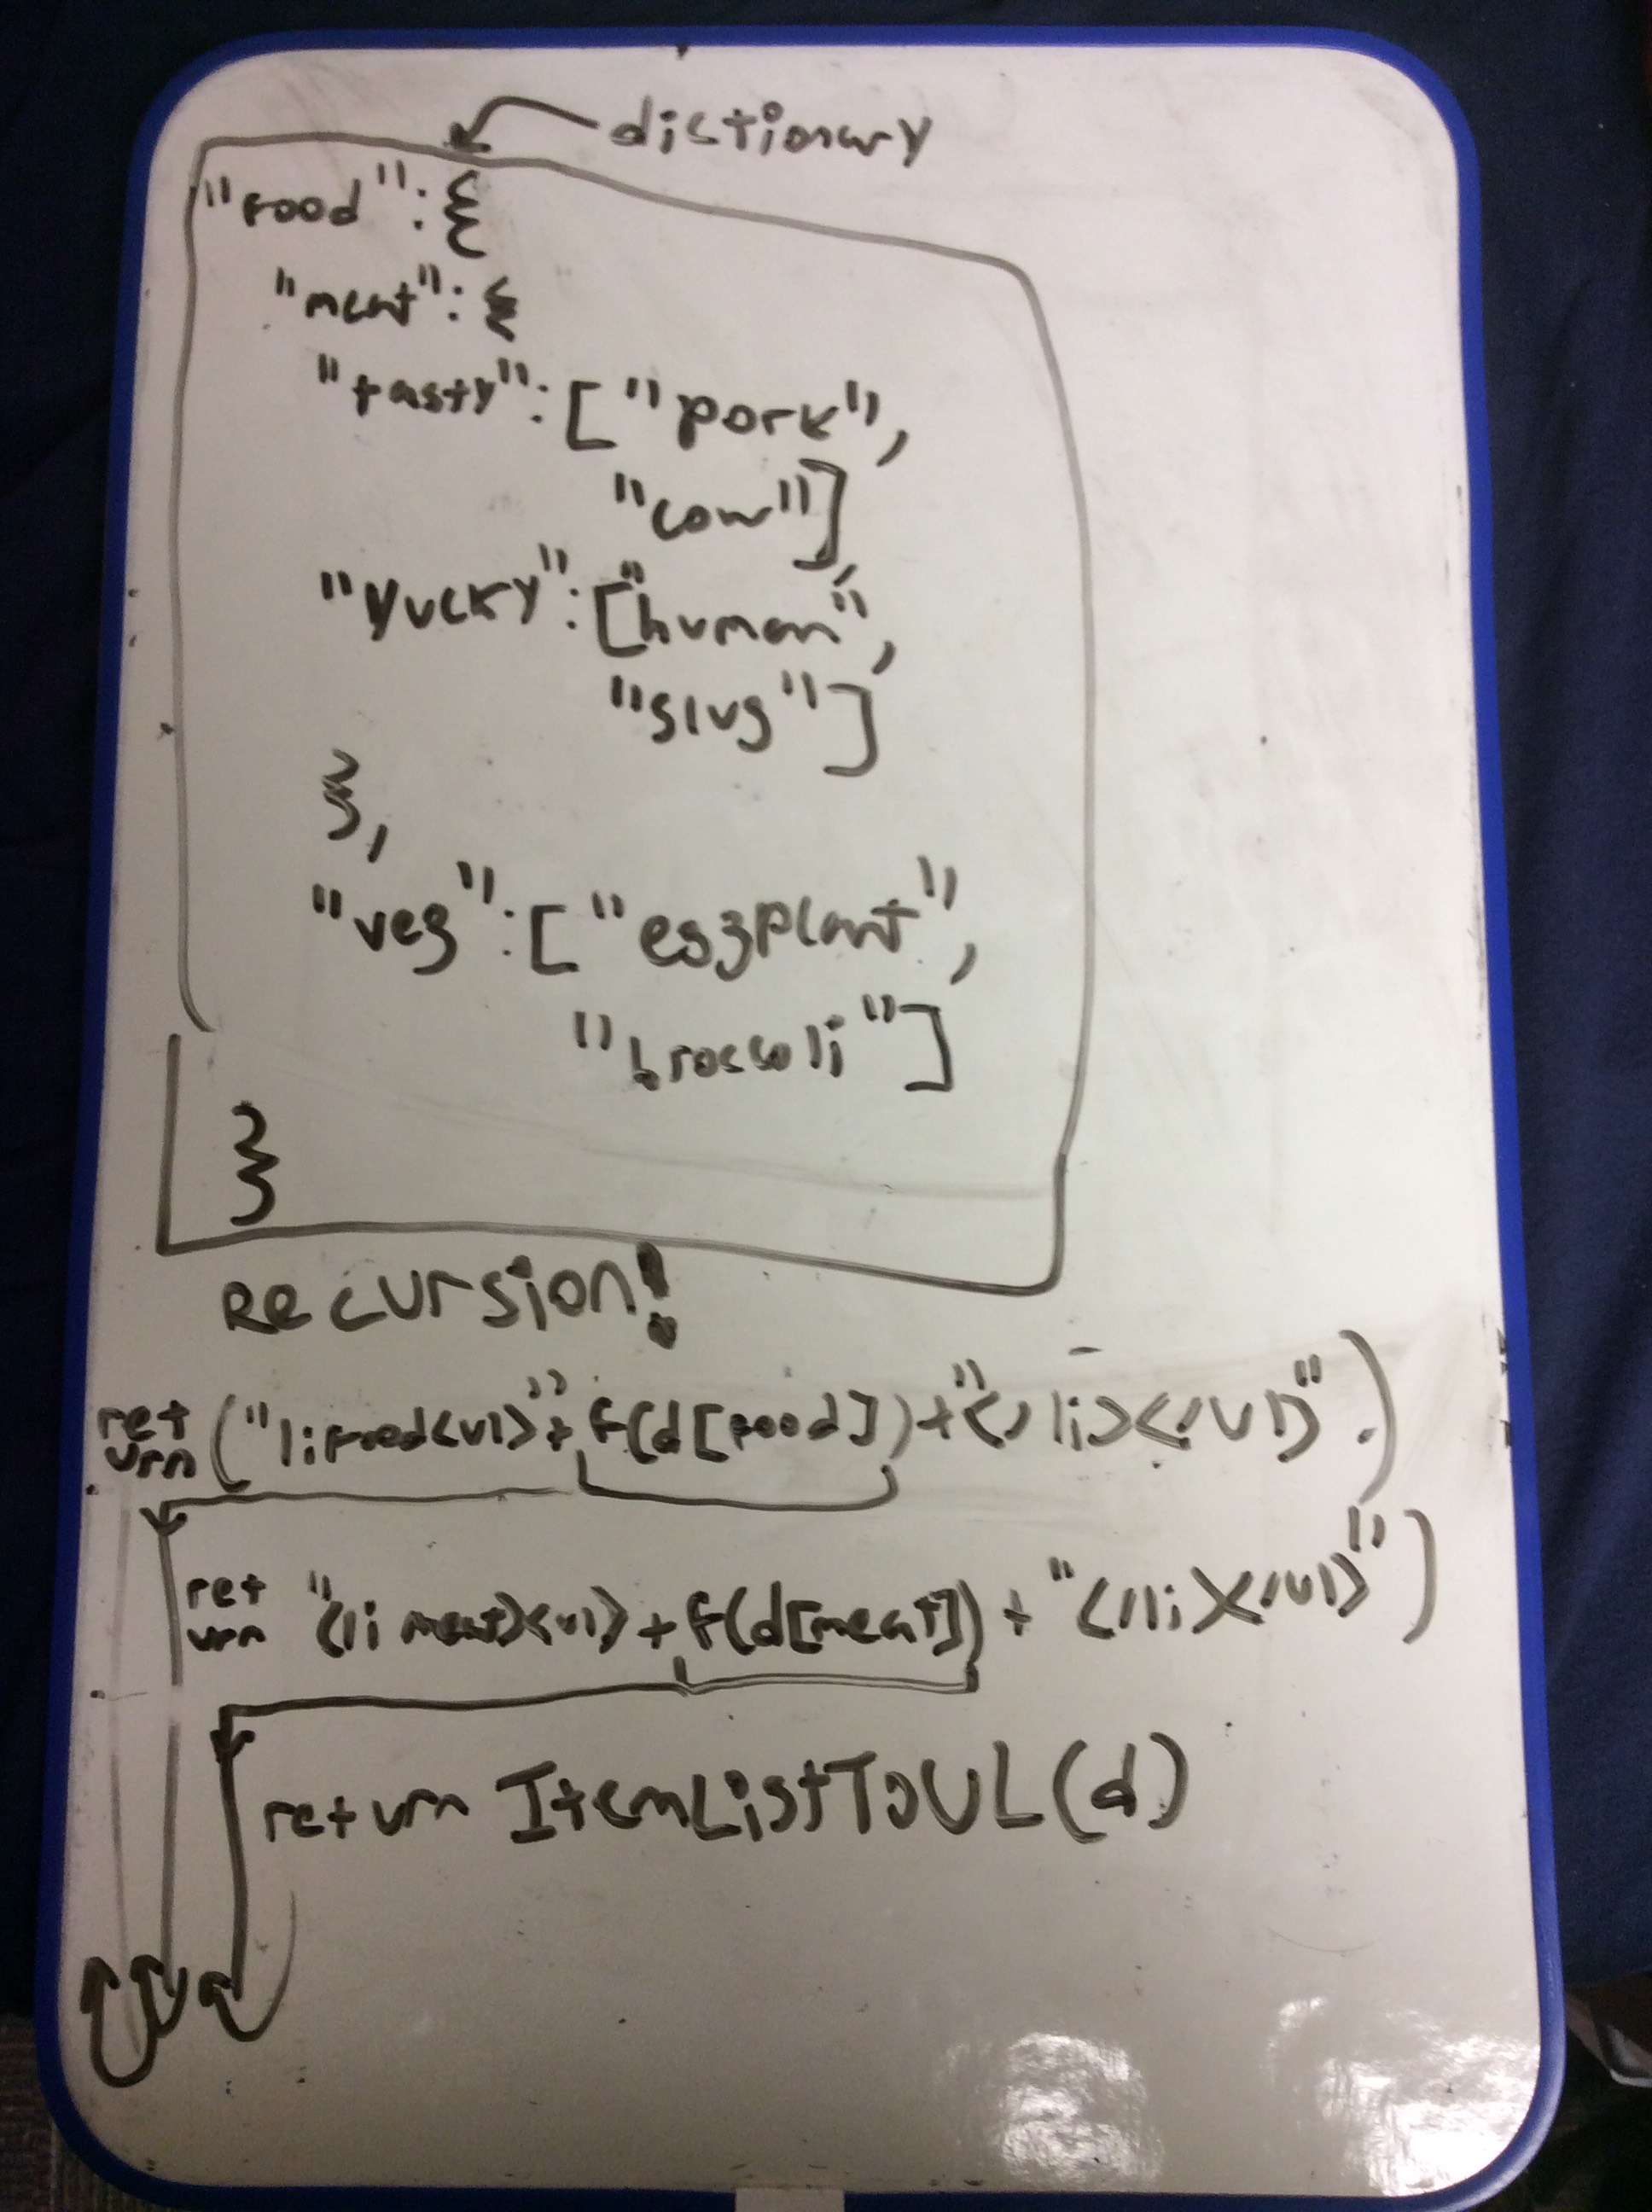 dictionary
"food":{
"meat":{
"tasty":["pork",
"cow"],
"yucky":["human",
"slug"]
},
"veg":["eggplant",
"broccoli"]
}
Recursion!
return ("li food<ul>"+f(d[food])+"</li></ul>".)
return "<li meat><ul>+f(d[meat])+"</li></ul>")
return ItemListToUL(d)